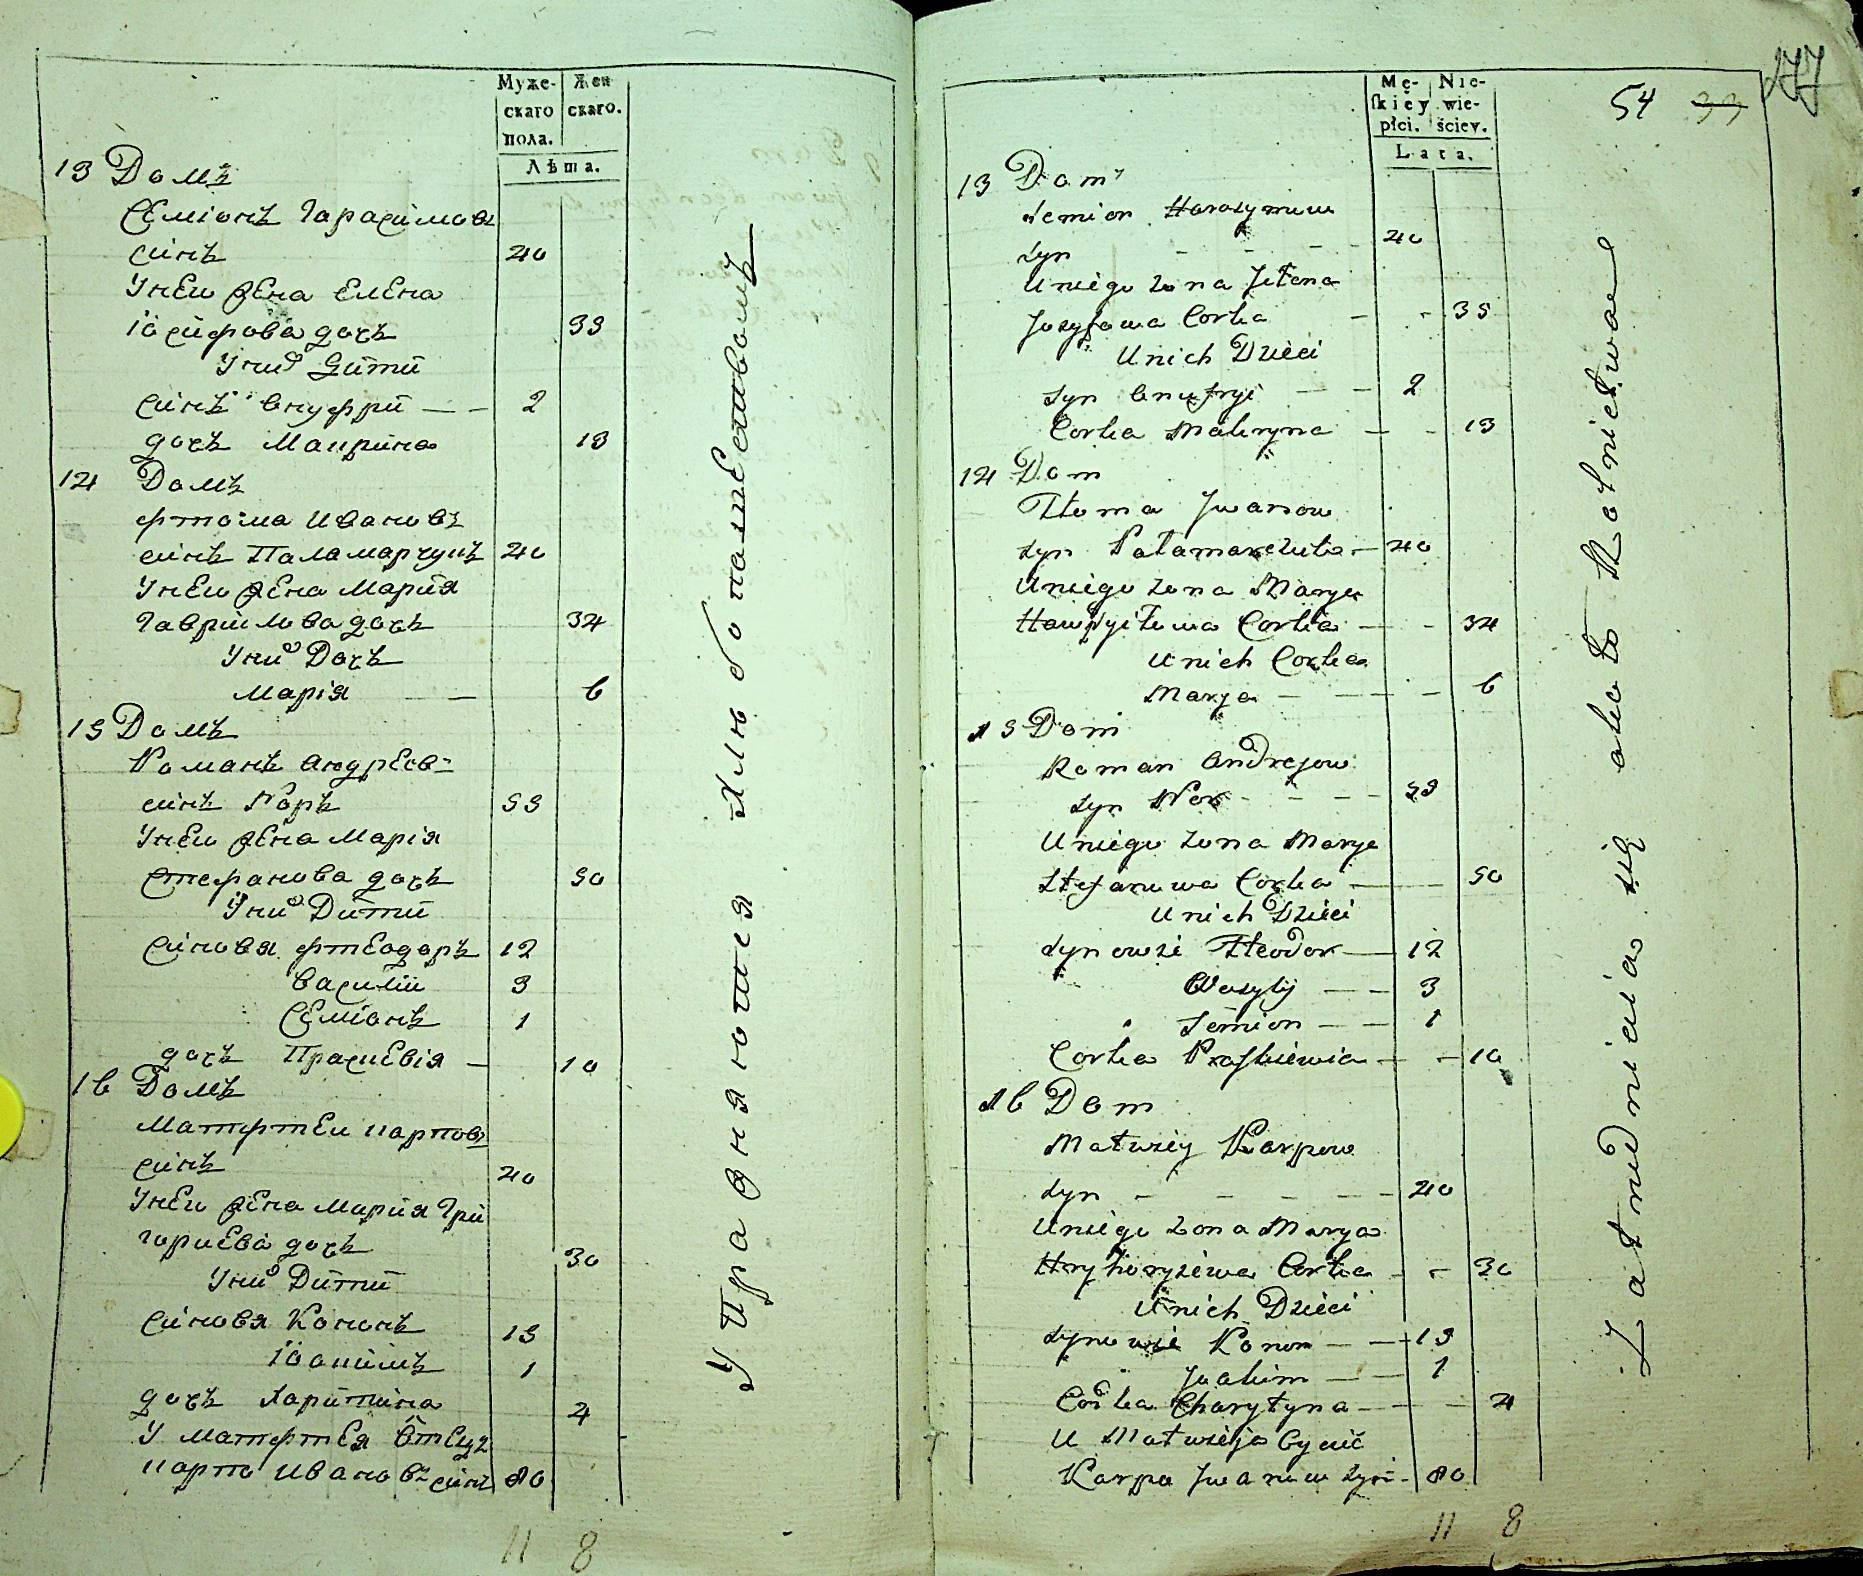 Муже-
скаго
пола.
Жен
скаго.
Лѣта.
13 Домъ
Семіонъ Гарасимовъ
синъ 40
Унего жена Елена
Іосифова дочь 33
Уних Дити
синъ Онуфри — — 2
дочь Макрина 13
14 Домъ
Фтома Ивановъ
синъ Паламарчукъ 40
Унего жена Марія
Гаврилова дочь 34
Уних Дочь
Марія — — 6
15 Домъ
Романъ Андреев-
синъ 53
Унего жена Марія
Стефанова дочь 50
Уних Дити
синовя Фтеодоръ 12
Василіи 3
Семіонъ 1
дочь Праскевія — 10
16 Домъ
Матфтеи Карповъ
синъ 40
Унего жена Марія Гри
горіева дочь 30
Уних Дити
синовя Кононъ 13
Іоакимъ 1
дочь Харитина 4
У Матфтея Отецъ
Карпо Ивановъ синъ 80
11 8
Упражняютися Хлѣбопашествомъ
Mę-
skiéy
płci.
Nie-
wie-
ściey.
Lata.
54 33
277
13 Dom
Semion Harasymow
syn - - - 40
Uniego żona Jelena
Jozyfowa Corka - - 33
Unich Dzieci
syn Onufryi — — 2
Corka Makryna — - 13
14 Dom
Ftoma Jwanow
syn Pałamarczuk — 40
Uniego żona Marya
Hawryiłowa Corka — - 34
Unich Corka
Marya — — — 6
15 Dom
Roman Andrejow
syn - - - 53
Uniego żona Marya
Stefanowa Corka — — 50
Unich Dzieci
synowie Fteodor — 12
Wasylij — — 3
Semion — — 1
Corka Praskiewia — — 10
16 Dom
Matwiey Karpow
syn - - - - 40
Uniego żona Marya
Hryhoryiewa Corka - - 30
Unich Dzieci
synowie Konon — — 13
Joakim — — 1
Corka Charytyna — — 4
U Matwieja Oyciec
Karpo Jwanow syn - 80
11 8
Zatrudniaią się około Rolnictwa